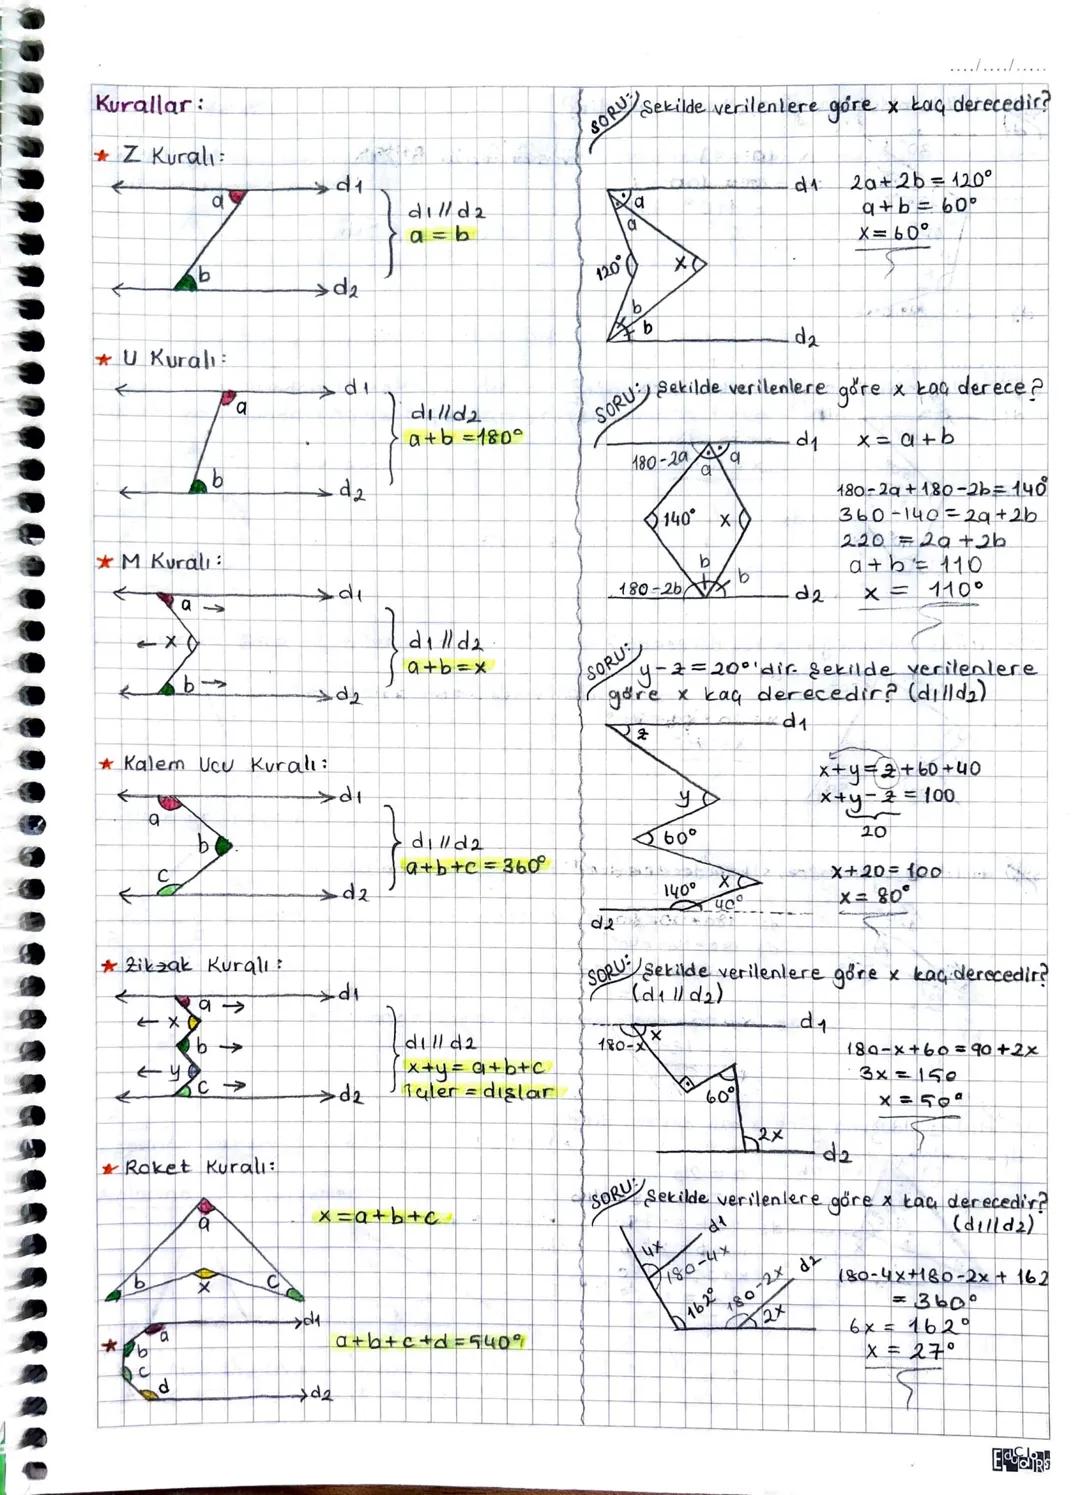 ..../..../.....
Kurallar:
★ Z Kuralı:
a
d1
b
d2
d1 // d2
a = b
★ U Kuralı:
d1
a
b
d2
d1 // d2
a+b = 180°
★ M Kuralı:
d1
a
x
b
d2
d1 // d2
a+b = x
★ Kalem Ucu Kuralı:
d1
a
b
c
d2
d1 // d2
a+b+c = 360°
★ Zikzak Kuralı:
d1
a
x
b
y
c
d2
d1 // d2
x+y = a+b+c
içler = dışlar
★ Roket Kuralı:
a
b
c
x
x = a+b+c
★
d1
a
b
c
d
d2
a+b+c+d = 540°
SORU: Şekilde verilenlere göre x kaç derecedir?
d1
a
a
120°
x
b
b
d2
2a+2b = 120°
a+b = 60°
x = 60°
SORU: Şekilde verilenlere göre x kaç derece?
d1
180-2a
a
a
140°
x
b
b
180-2b
d2
x = a+b
180-2a+180-2b = 140°
360-140 = 2a+2b
220 = 2a+2b
a+b = 110
x = 110°
SORU: y-z = 20°'dir. Şekilde verilenlere
göre x kaç derecedir? (d1//d2)
d1
z
y
60°
x
140°
40°
d2
x+y = z+60+40
x+y-z = 100
20
x+20 = 100
x = 80°
SORU: Şekilde verilenlere göre x kaç derecedir?
(d1 // d2)
d1
180-x
x
60°
2x
d2
180-x+60 = 90+2x
3x = 150
x = 50°
SORU: Şekilde verilenlere göre x kaç derecedir?
(d1//d2)
d1
4x
180-4x
162°
180-2x
d2
2x
180-4x+180-2x+162
= 360°
6x = 162°
x = 27°